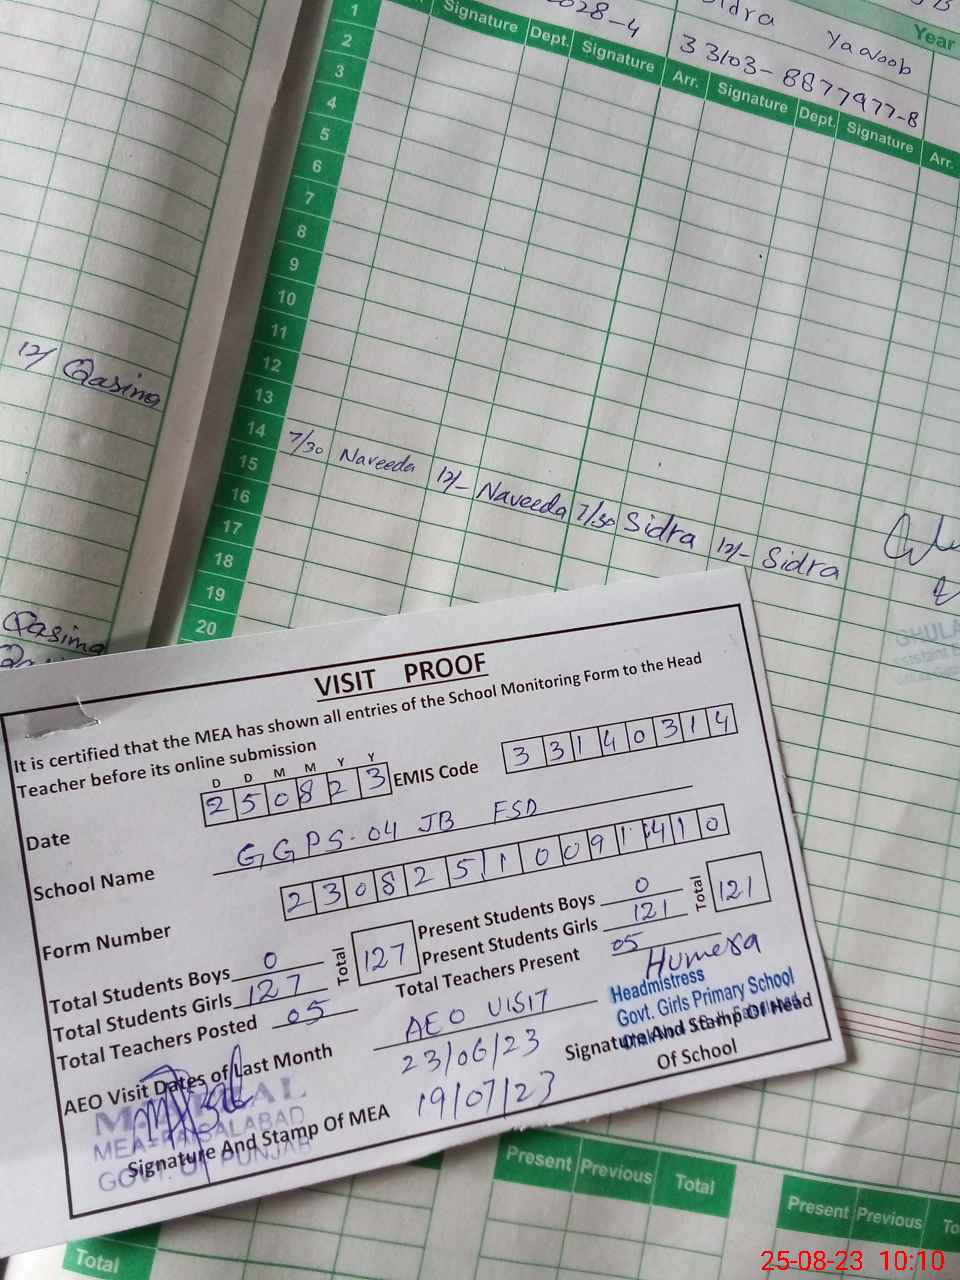 Year
Sidra Yaqoob
028-4 33103-8877977-8
Signature Dept. Signature Arr. Signature Dept. Signature Arr.
1
2
3
4
5
6
7
8
9
10
11
12
13
14
15
16
17
18
19
20
12/ Qasima
Qasima
7/30 Naveeda 12/- Naveeda 7/30 Sidra 12/- Sidra
VISIT PROOF
It is certified that the MEA has shown all entries of the School Monitoring Form to the Head
Teacher before its online submission
D D M M Y Y
Date 250823 EMIS Code 33140314
School Name GGPS-04 JB FSD
Form Number 23082510091410
Total Students Boys 0 Total 127 Present Students Boys 0 Total 121
Total Students Girls 127 Present Students Girls 121
Total Teachers Posted 05 Total Teachers Present 05
Humera
Headmistress
Govt. Girls Primary School
AEO Visit Dates of Last Month AEO VISIT
23/06/23
19/07/23
Signature And Stamp Of Head
Of School
MEA-FAISALABAD
GOVT. OF PUNJAB
Signature And Stamp Of MEA
Present Previous Total
Present Previous To
Total
25-08-23 10:10